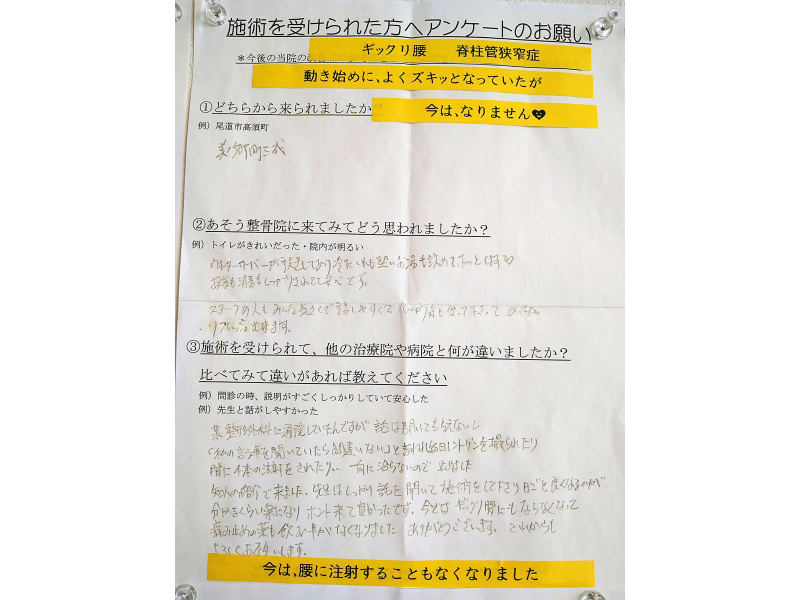 施術を受けられた方へアンケートのお願い
ギックリ腰 脊柱管狭窄症
＊今後の当院の
動き始めに、よくズキッとなっていたが
①どちらから来られましたか？
今は、なりません♥
例）尾道市高須町
美ノ郷町三成
②あそう整骨院に来てみてどう思われましたか？
例）トイレがきれいだった・院内が明るい
ウォーターサーバーが設置してあり冷たいれも熱いお湯も飲めてホッとします♡
換気も消毒もしっかりされてて安心です。
スタッフの人もみんな気さくで話しやすくて しっかり気を使って下さって
リフレッシュ出来ます。
③施術を受けられて、他の治療院や病院と何が違いましたか？
比べてみて違いがあれば教えてください
例）問診の時、説明がすごくしっかりしていて安心した
例）先生と話がしやすかった
某整形外科に通院していたんですが 話は聞いてもらえないし
「私の言う事を聞いていたら間違いない」と言われ毎日レントゲンを撮られたり
腰に4本の注射をされたり、、 一向に治らないので 止めました
知人の紹介で来ました。先生はしっかり話を聞いて施術をして下さり日ごと良くなるのが
分かるくらい楽になり ホント来て良かったです。今では ギックリ腰にもならなくなって
痛み止めの薬も飲む事がなくなりました ありがとうございます。これからも
よろしくお願いします。
今は、腰に注射することもなくなりました